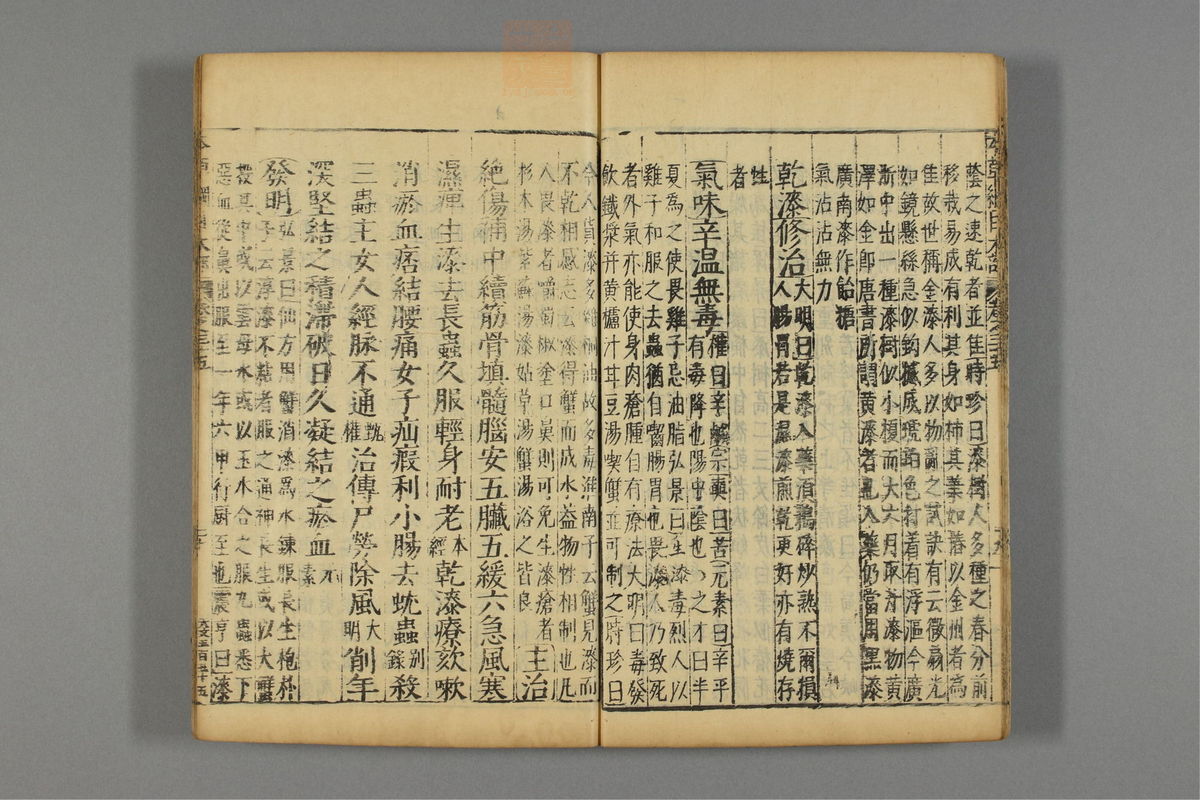 蔭之速乾者並佳時珍曰漆樹人多種之春分前
移栽易成有利其身如柿其葉如椿以金州者為
佳故世稱金漆人多以物亂之試訣有云微扇光
如鏡懸絲急似鉤撼成琥珀色打著有浮漚今廣
浙中出一種漆樹似小榎而大六月取汁漆物黃
澤如金即唐書所謂黃漆者也入藥仍當用黑漆
廣南漆作飴糖
氣沾沾無力
乾漆修治大明曰乾漆入藥須搗碎炒熟不爾損
人腸胃若是濕漆煎乾更好亦有燒存
性
者
氣味辛溫無毒權曰辛鹹宗奭曰苦元素曰辛平
有毒降也陽中陰也、之才曰半
夏為之使畏雞子忌油脂弘景曰生漆毒烈人以
雞子和服之去蟲猶自嚙腸胃也畏漆人乃致死
者外氣亦能使身肉瘡腫自有療法大明曰毒發
飲鐵漿并黃櫨汁甘豆湯喫蟹並可制之時珍曰
今人貨漆多雜桐油故多毒淮南子云蟹見漆而
不乾相感志云漆得蟹而成水蓋物性相制也凡
人畏漆者嚼蜀椒塗口鼻則可免生漆瘡者
杉木湯紫蘇湯漆姑草湯蟹湯浴之皆良
主治
絕傷補中續筋骨填髓腦安五臟五緩六急風寒
濕痺生漆去長蟲久服輕身耐老本經乾漆療欬嗽
消瘀血痞結腰痛女子疝瘕利小腸去蚘蟲別錄殺
三蟲主女人經脉不通甄權治傳尸勞除風大明削年
深堅結之積滯破日久凝結之瘀血元素
發明弘景曰仙方用蟹消漆為水鍊服長生抱朴
子云淳漆不粘者服之通神長生或以大蟹
投其中或以雲母水或以玉水合之服九蟲悉下
惡血從鼻出服至一年六甲行廚至也震亨曰漆